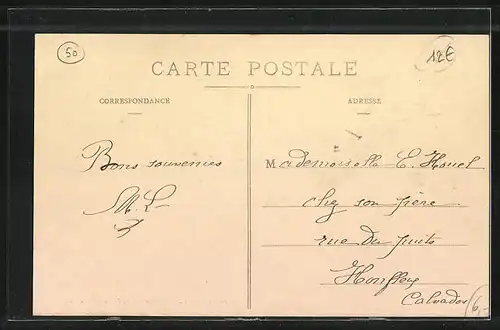 50
12€
CARTE POSTALE
CORRESPONDANCE
ADRESSE
Bons souvenirs
M. L.
Mademoiselle E. Houel
chez son père
rue du puits
Honfleur
Calvados
6,-